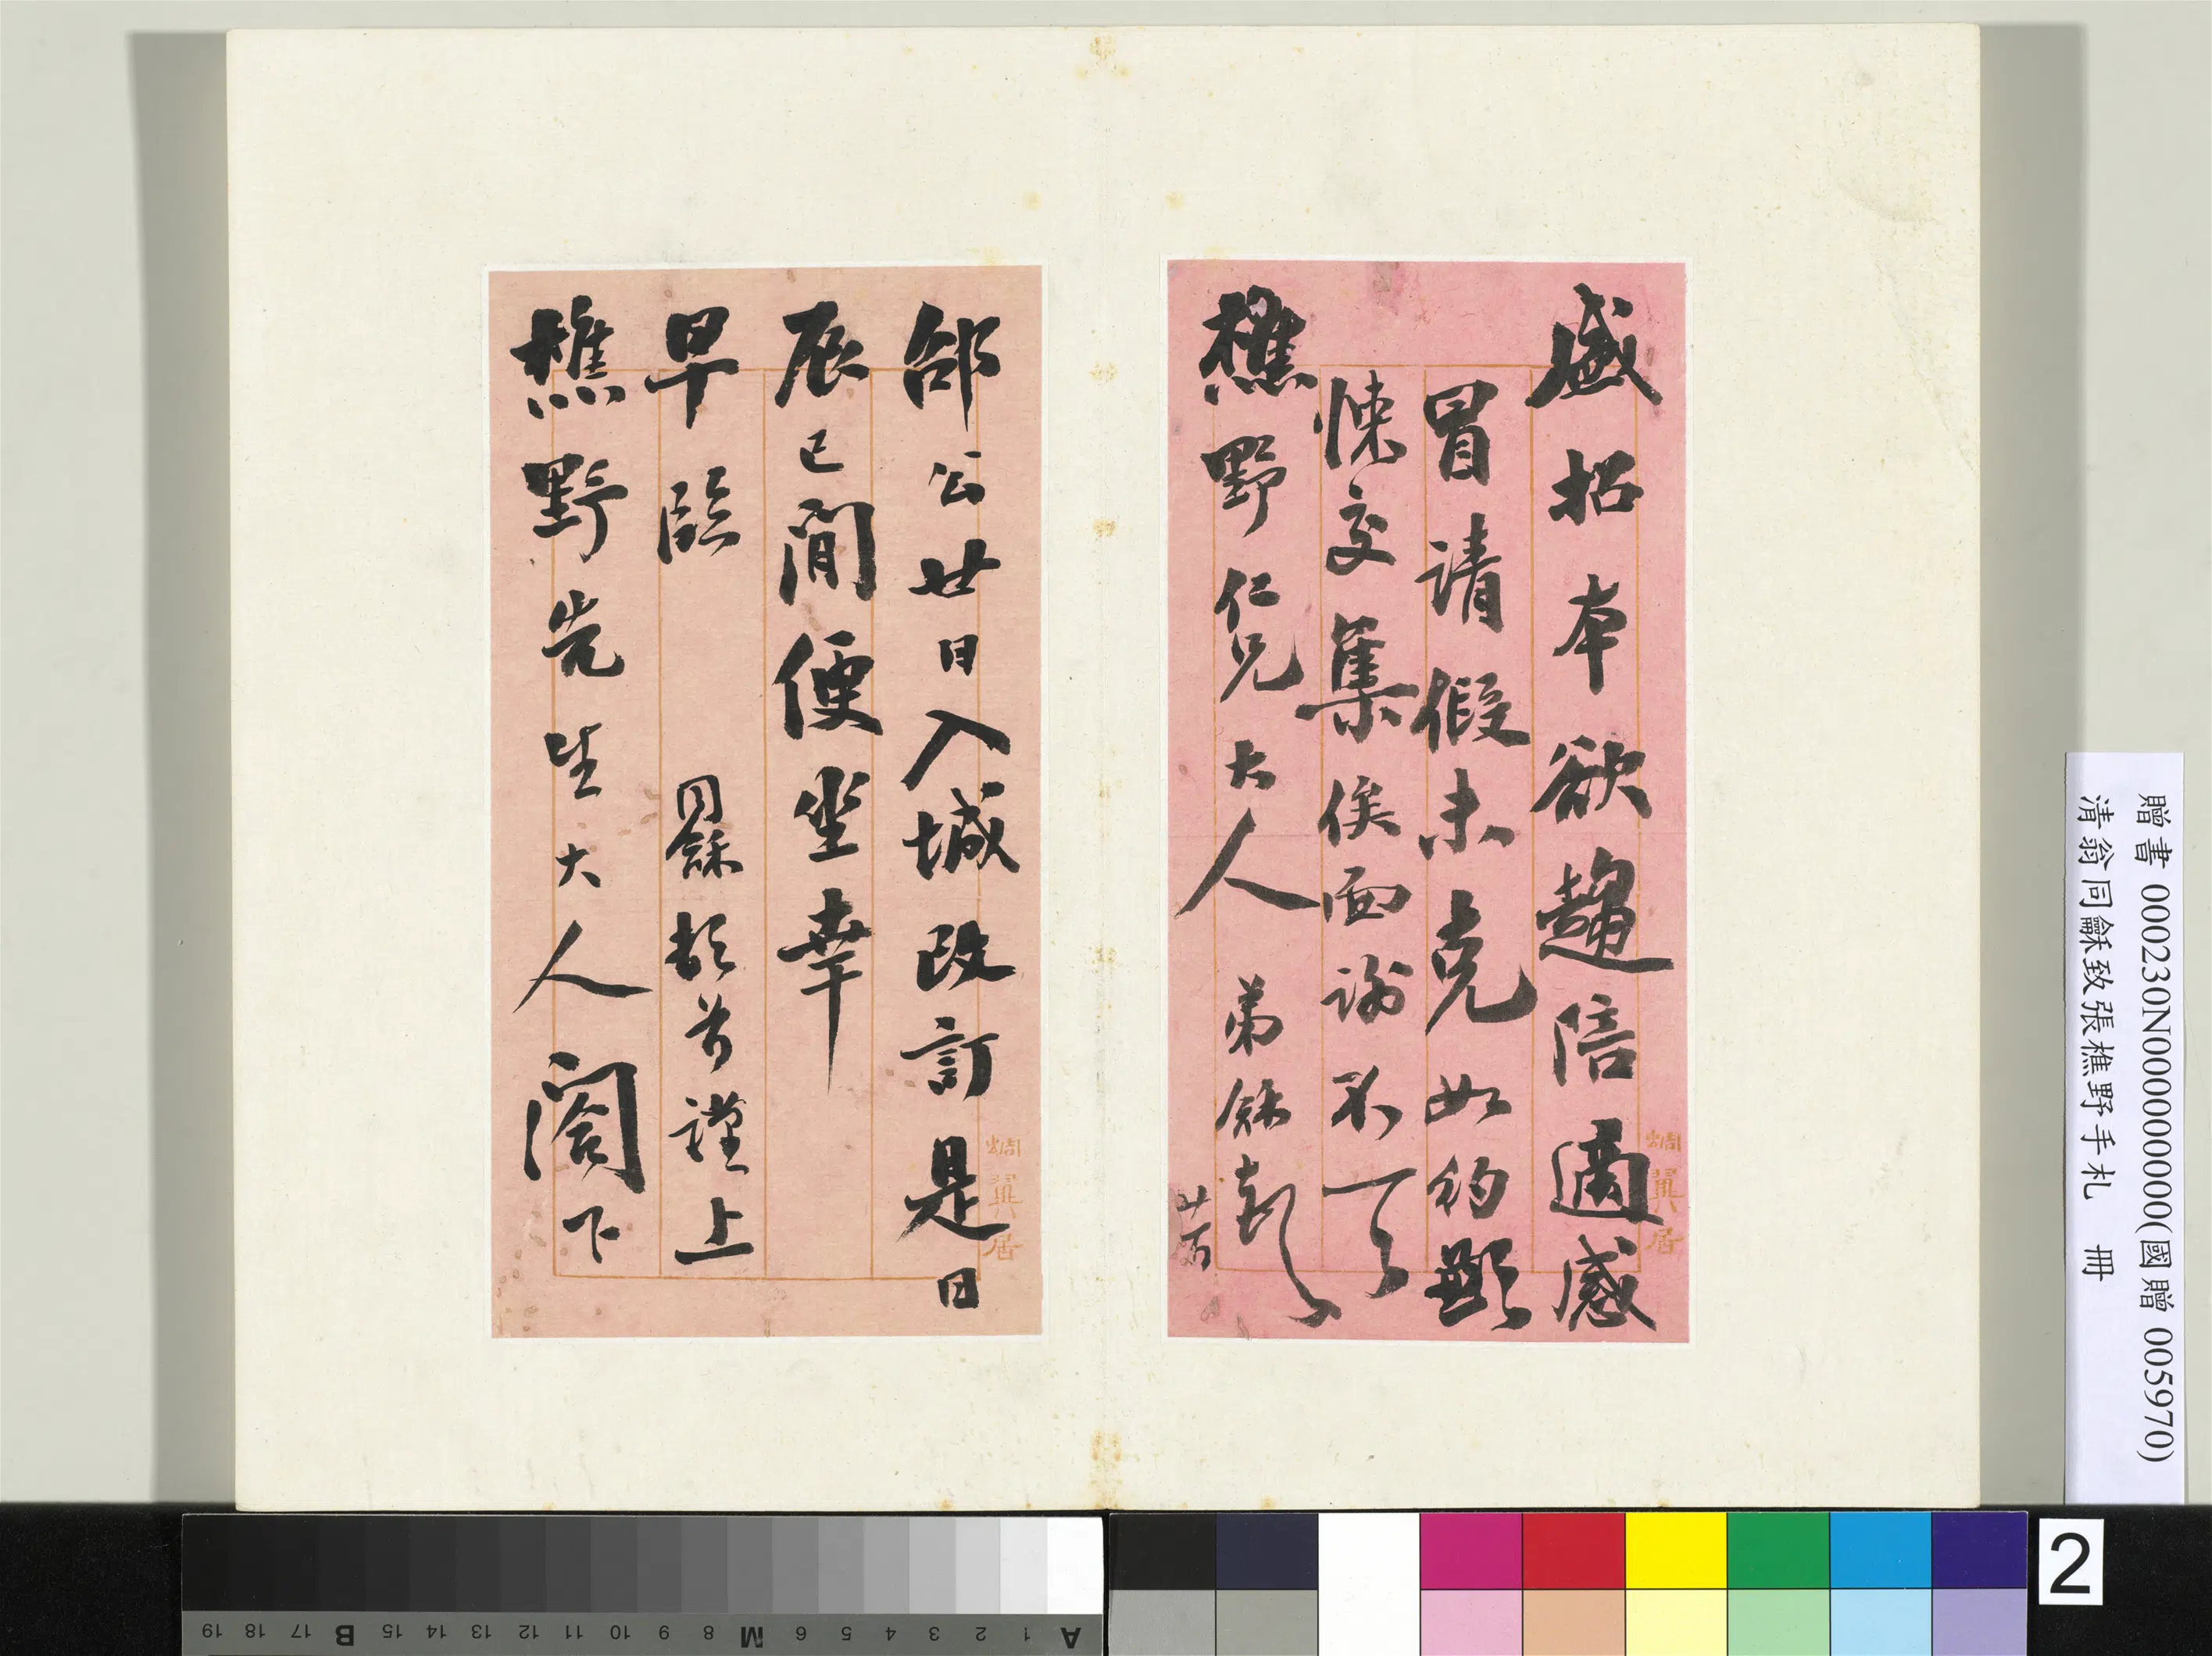 盛招本欲趨陪適感
冒請假未克如約顓
悚交集俟面謝不一一
樵野仁兄大人 弟龢頓首
廿六
蜩翼居
郃公廿日入城改訂是日
辰巳間便坐幸
早臨 同龢頓首謹上
樵野先生大人閣下
蜩翼居
贈書 000230N000000000(國贈 005970)
清翁同龢致張樵野手札 冊
A 1 2 3 4 5 6 M 8 9 10 11 12 13 14 15 B 17 18 19
2